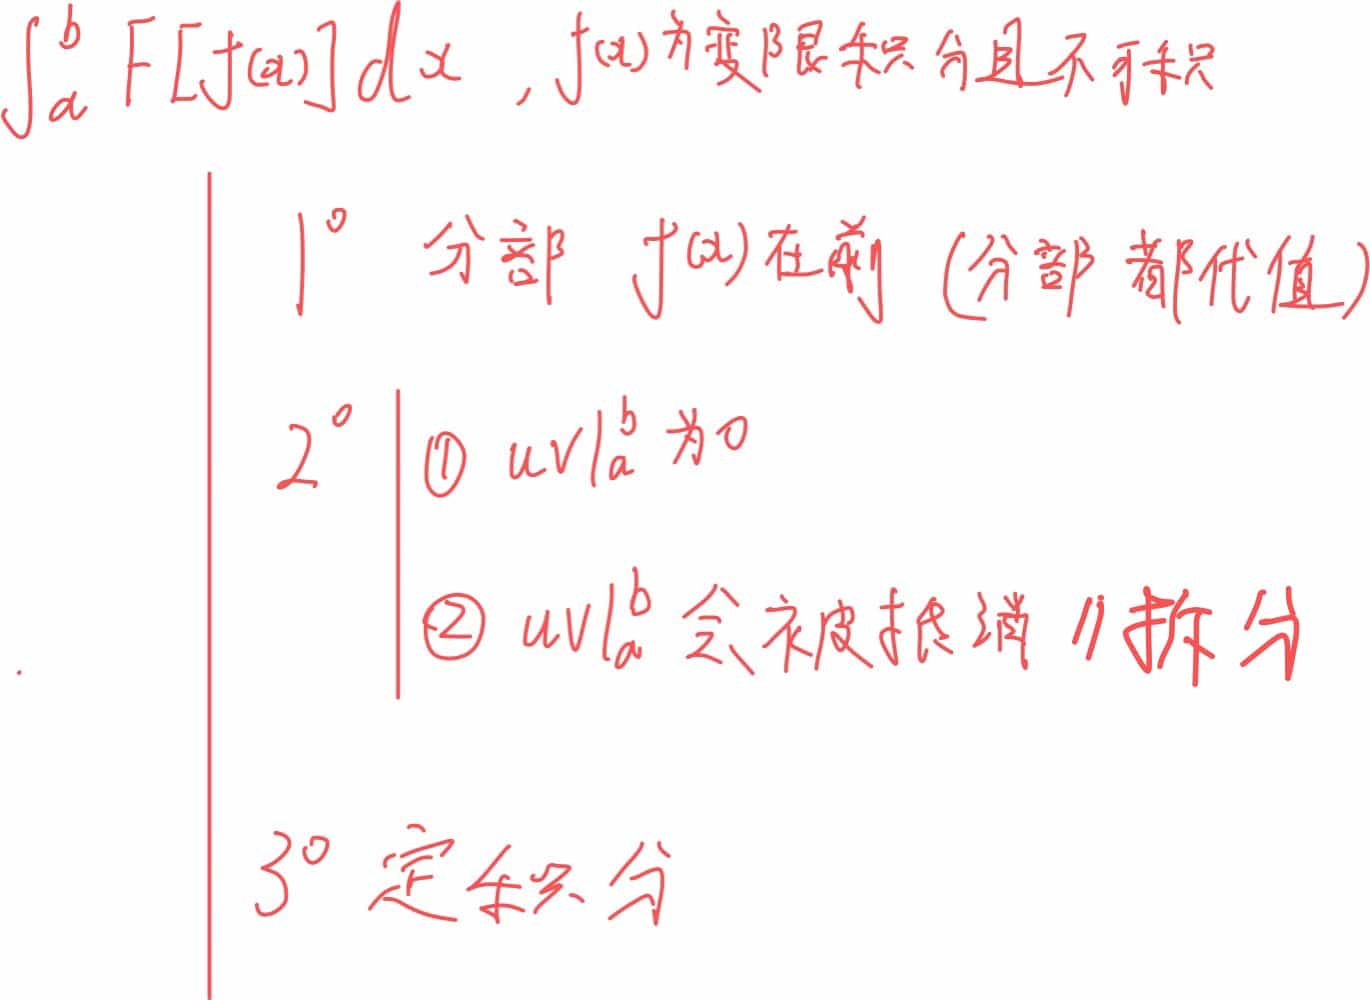 ∫ₐᵇ F[f(x)]dx , f(x)为变限积分且不可积
1° 分部 f(x)在前 (分部都代值)
2° ① uv|ₐᵇ 为0
② uv|ₐᵇ 会被抵消 // 拆分
3° 定积分